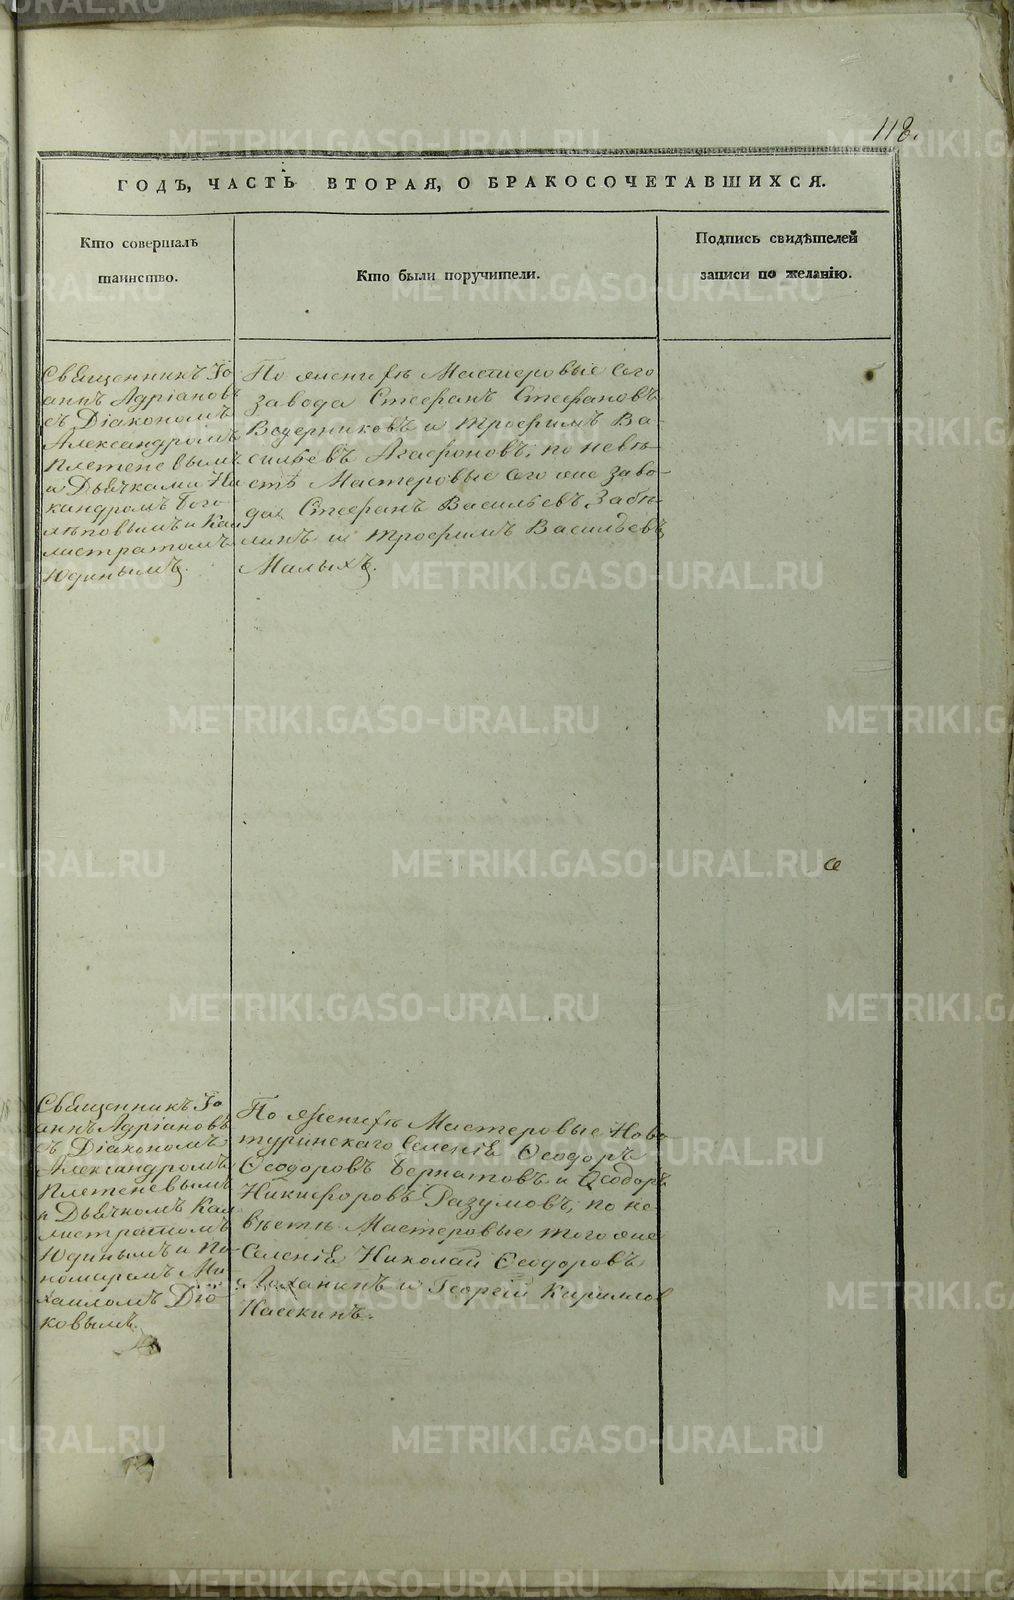 118.
ГОДЪ, ЧАСТЬ ВТОРАЯ, О БРАКОСОЧЕТАВШИХСЯ.
Кто совершалъ
таинство.
Кто были поручители.
Подпись свидѣтелей
записи по желанію.
Священникъ Іо
аннъ Адріановъ
съ Діакономъ
Александромъ
Плетеневымъ
и Дьячками Ни
кандромъ Бого
лѣповымъ и Кал
листратомъ
Юдинымъ.
По женихѣ Мастеровые сего
завода Стефанъ Стефановъ
Ведерниковъ и Трофимъ Ва-
сильевъ Агафоновъ; по невѣ-
стѣ Мастеровые сего же заво-
да Стефанъ Васильевъ Забѣ
линъ и Трофимъ Васильевъ
Малыхъ.
Священникъ Іо
аннъ Адріановъ
съ Діакономъ
Александромъ
Плетеневымъ
и Дьячкомъ Кал
листратомъ
Юдинымъ и По-
номаремъ Ми
хаиломъ
ковымъ.
По женихѣ Мастеровые Ново
туринскаго Селенія Ѳеодоръ
Ѳеодоровъ и Ѳеодоръ
Никифоровъ Разумовъ; по не-
вѣстѣ Мастеровые того же
Селенія Николай Ѳеодоровъ
и Георгій Кириллов
METRIKI.GASO-URAL.RU